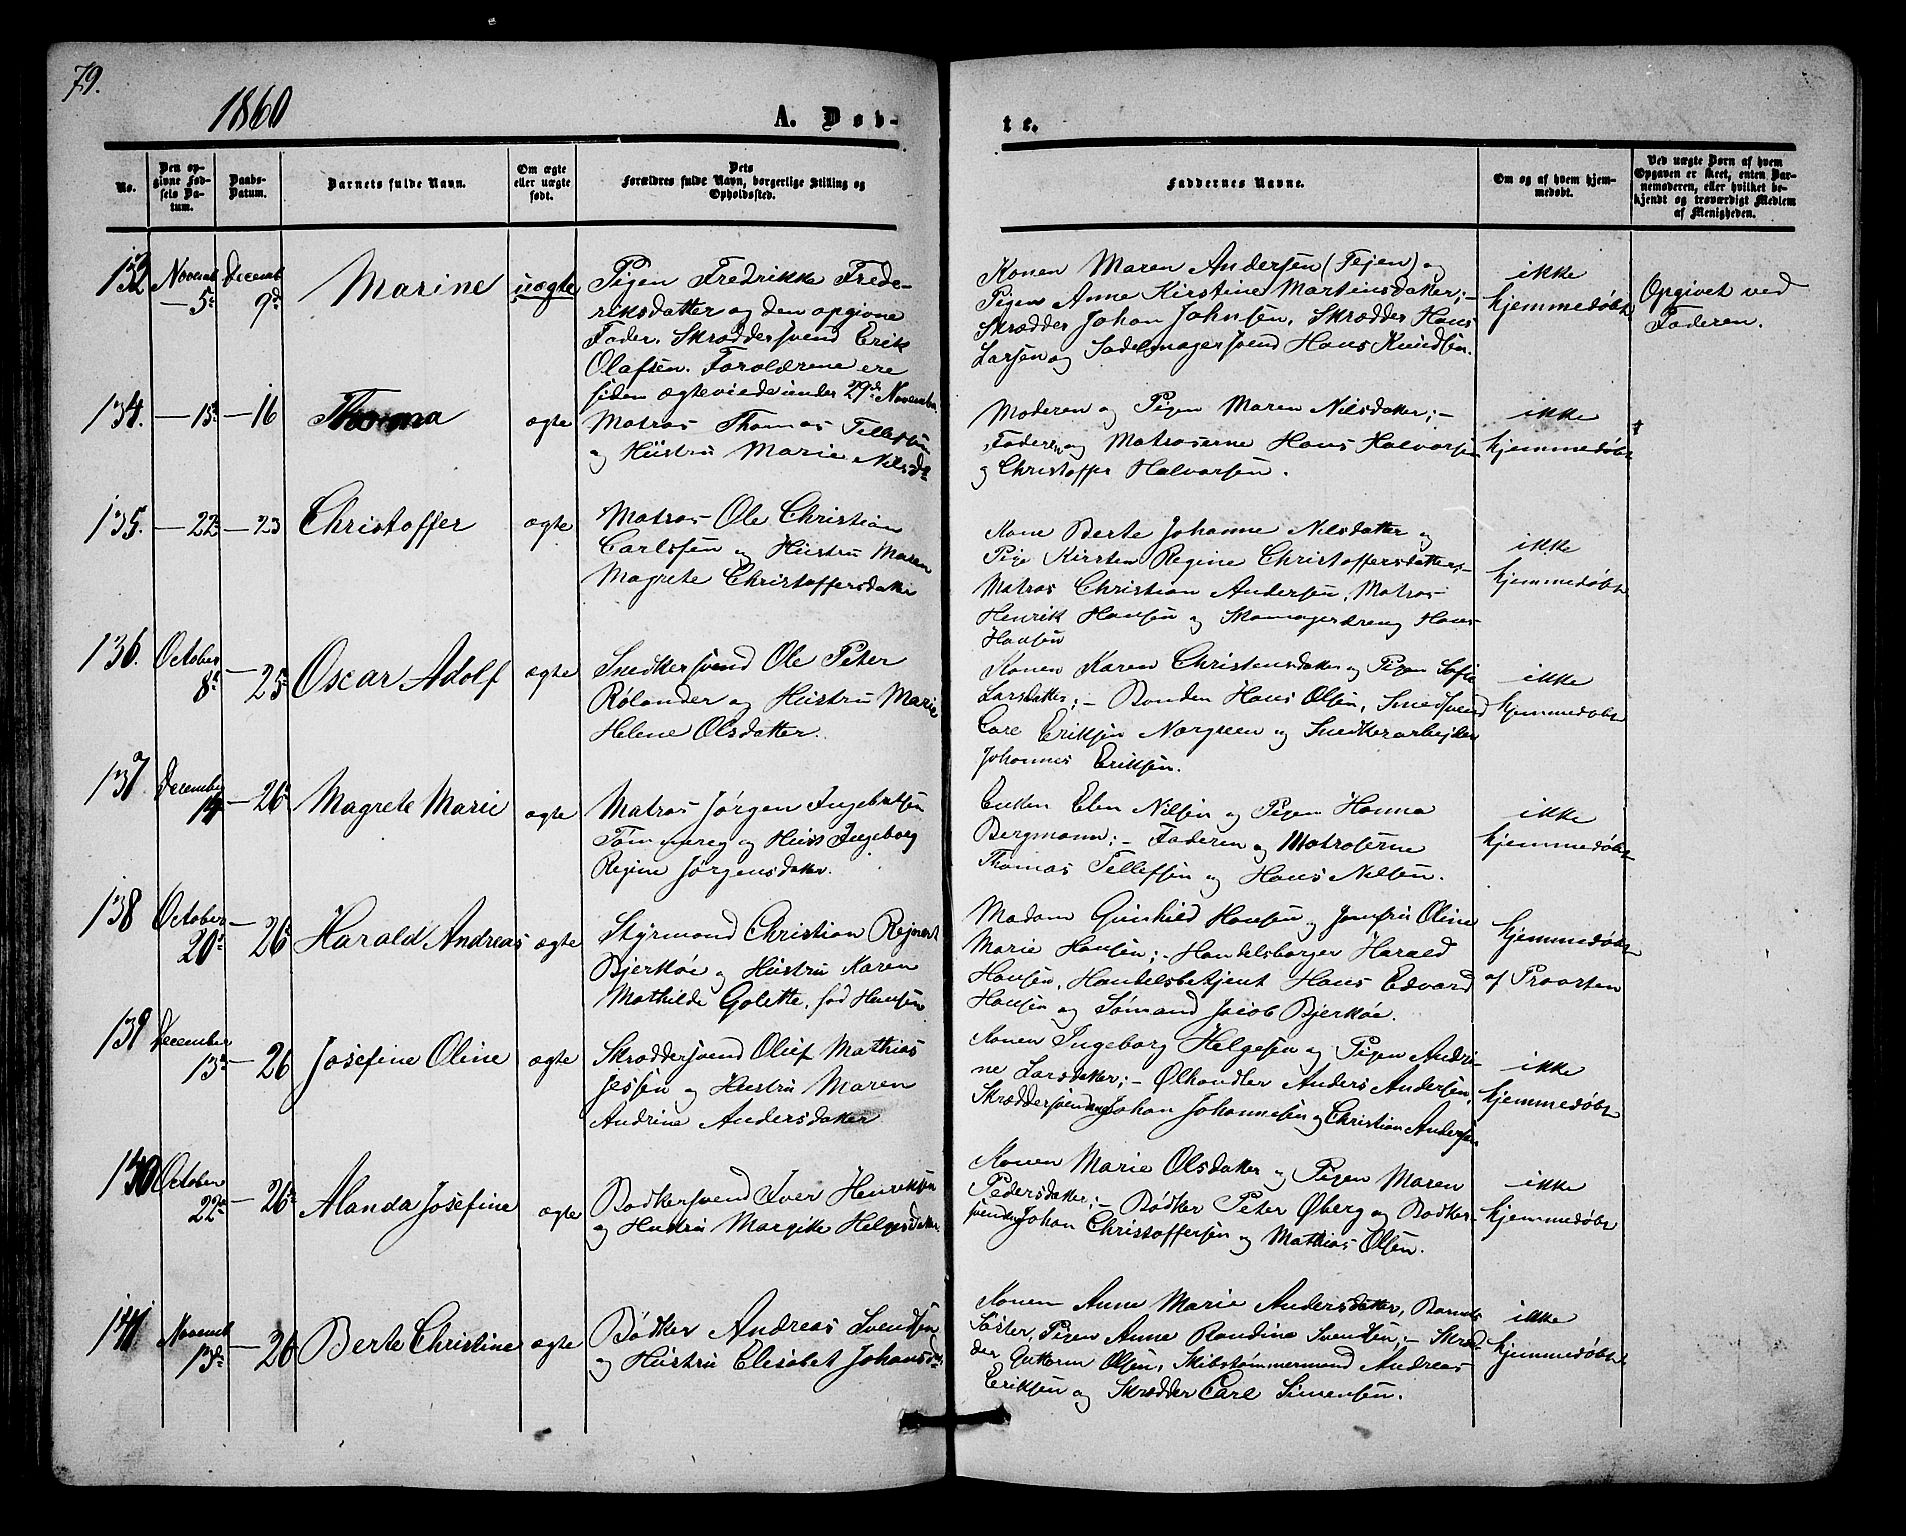 79.
1860
A. Døb-
te.
No.
Den op-
givne Fød-
sels Da-
tum.
Daabs-
Datum.
Barnets fulde Navn.
Om ægte
eller uægte
født.
Dets
Forældres fulde Navn, borgerlige Stilling og
Opholdssted.
Faddernes Navne.
Om og af hvem hjem-
medøbt.
Ved uægte Børn af hvem
Opgaven er skeet, enten Bar-
nemoderen, eller hvilket be-
kjendt og troværdigt Medlem
af Menigheden.
Novemb
5
Decemb
9
Marine
uægte
Pigen Fredrikke Frede-
riksdatter og den opgivne
Fader, Skræddersvend Erik
Olafsen. Forældrene ere
siden ægteviede under 29de November
Konen Maren Andersen (Tejen) og
Pigen Anne Kirstine Martinsdatter; -
Skrædder Johan Johnsen, Skrædder Hans
Larsen og Sadelmagersvend Hans Knudsen.
ikke
hjemmedøbt
Opgivet ved
Faderen.
134. — 15 — 16
Thoma
ægte
Matros Thomas Tellefsen
og Hustru Marie Nilsd
Moderen og Pigen Maren Nilsdatter; -
Faderen og Matroserne Hans Halvorsen
og Christoffer Halvorsen.
ikke
hjemmedøbt
135. — 22 — 23
Christoffer
ægte
Matros Ole Christian
Carlsen og Hustru Maren
Magrete Christoffersdatter
Kone Berte Johanne Nilsdatter og
Pige Kirsten Regine Christoffersdatter; -
Matros Christian Andersen, Matros
Henrik Hansen og Skomagerdreng Hans
Hansen
ikke
hjemmedøbt
136. October
8 — 25
Oscar Adolf
ægte
Snedkersvend Ole Peter
Rolander og Hustru Marie
Helene Olsdatter.
Konen Karen Christensdatter og Pigen Sofie
Larsdatter; - Bonden Hans Olsen, Smedsvend
Carl Eriksen Norgreen og Snedkerarbejder
Johannes Eriksen.
ikke
hjemmedøbt
137 December
14 — 26
Magrete Marie
ægte
Matros Jørgen Ingebretsen
og Hust Ingeborg
Regine Jørgensdatter.
Enken Elen Nilsen og Pigen Hanna
Bergmann; - Faderen og Matroserne
Thomas Tellefsen og Hans Nilsen.
ikke
hjemmedøbt
138 October
20 — 26
Harald Andreas
ægte
Styrmand Christian Rejnert
Bjerkøe og Hustru Karen
Mathilde Golette, fød Hansen
Madam Gunhild Hansen og Jomfru Oline
Marie Hansen; - Handelsborger Harald
Hansen, Handelsbetjent Hans Edvard
Hansen og Sømand Jacob Bjerkøe.
hjemmedøbt
af Provsten
139 December
13 — 26
Josefine Oline
ægte
Skræddersvend Oluf Mathias
Jessen og Hustru Maren
Andrine Andersdatter
Konen Ingeborg Helgesen og Pigen Andri-
ne Larsdatter; - Ølhandler Anders Andersen,
Skræddersvendene Johan Johannesen og Christian Andersen
ikke
hjemmedøbt
140 October
22 — 26
Alanda Josefine
ægte
Bødkersvend Iver Henriksen
og Hustru Margitte Helgesdatter
Konen Marie Olsdatter og Pigen Maren
Pedersdatter; - Bødker Peter Øberg og Bødker-
svendene Johan Christoffersen og Mathias Olsen.
ikke
hjemmedøbt
141 Novemb
13 — 26
Berte Christine
ægte
Bødker Andreas Svendsen
og Hustru Elisabet Johansd
Konen Anne Marie Andersdatter, Barnets
Søster, Pigen Anne Randine Svendsen; - Skræd-
der Guttorm Olsen, Skibstømmermand Andreas
Eriksen og Skrædder Carl Simensen.
ikke
hjemmedøbt